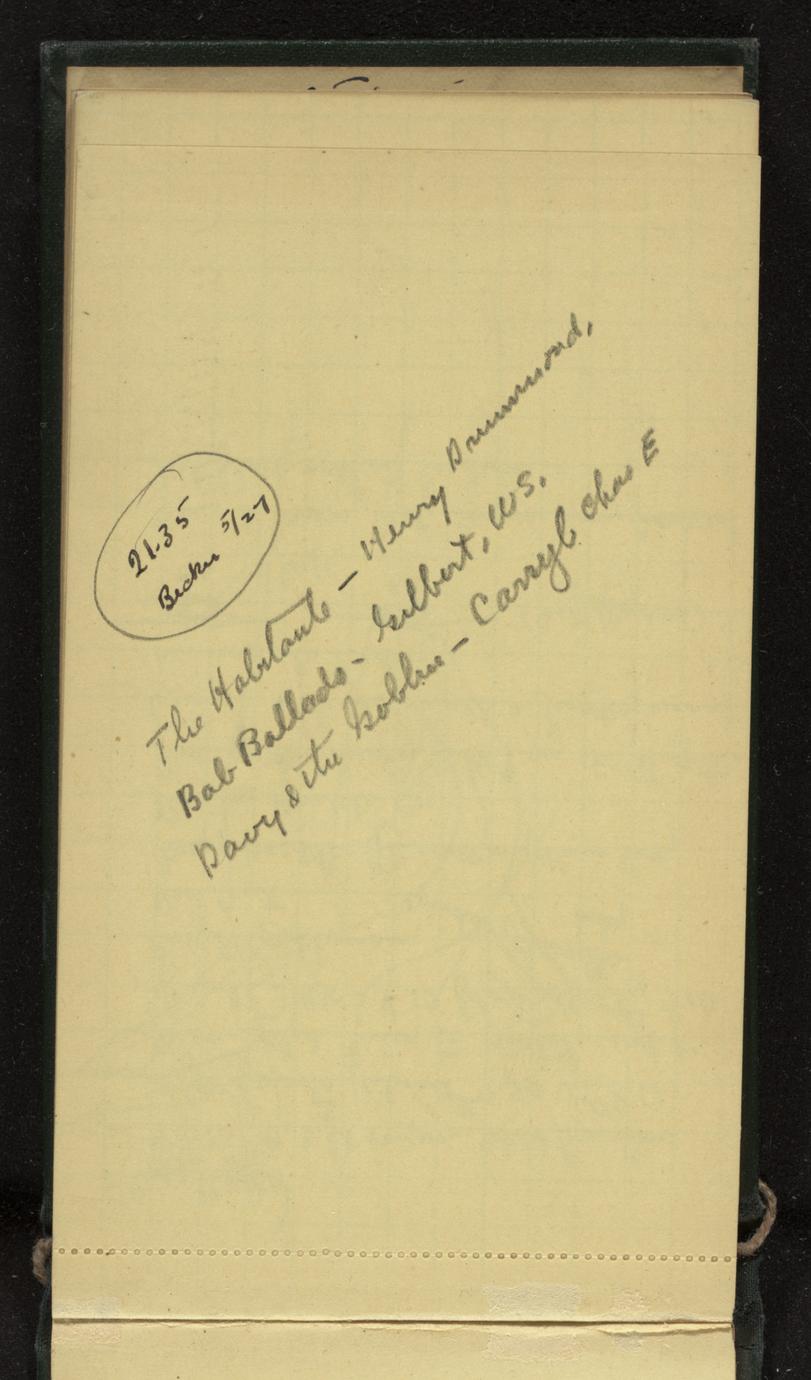 21.35
Becker 5/27
The Habitants - Henry Drummond,
Bab Ballads - Gilbert, WS.
Davy & the Goblin - Carryl Chas E